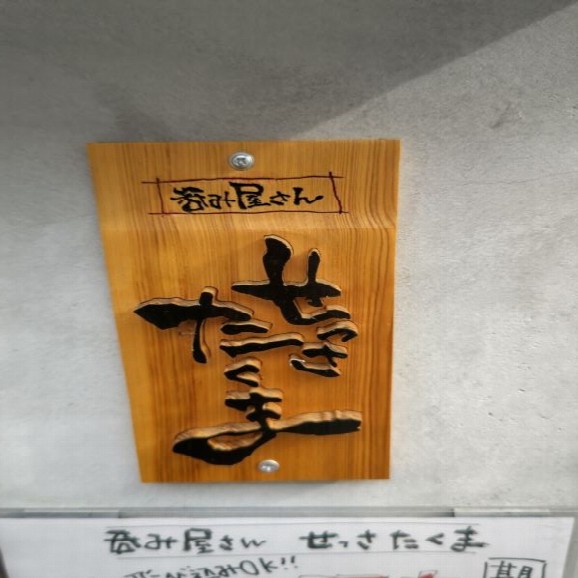 呑み屋さん
せっさ
たくま
呑み屋さん せっさたくま
OK!!